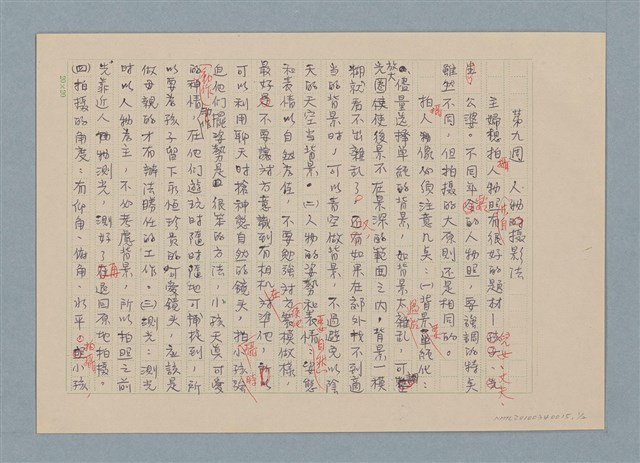 第九週　人物的攝影法
主婦想拍人物照有很好的題材—孩子、先
生、公婆。不同年令的人物照，要強調的特點
雖然不同，但拍攝的大原則還是相同的。
拍人物像必須注意几點：㈠背景單純化：
儘量選擇單純的背景，如背景太雜亂，可
放大光圈使後景不在景深的範圍之內。背景一模
糊就看不出雜亂了。還有如果在郊外找不到適
當的背景時，可以青空做背景，不過避免以陰
天的天空當背景。㈡人物的姿勢和表情：姿態
和表情以自然為佳，不要勉強對方裝模做樣，
最好是不要讓對方意識到有相機對準他，
可以利用聊天時搶神態自然的鏡頭，拍小孩
迫他們擺姿勢是很笨的方法，小孩天真可愛
的神情，在他們遊玩時隨時隨地可捕捉到，所
以要為孩子留下永恒珍貴的可愛鏡頭，應該是
做母親的才有辦法勝任的工作。㈢測光：測光
時以人物為主，不必考慮背景，所以拍照之前
先靠近人物測光，測好了再退回原地拍攝。
㈣拍攝的角度：有仰角、俯角、水平。小孩
兒女、丈夫
20×20